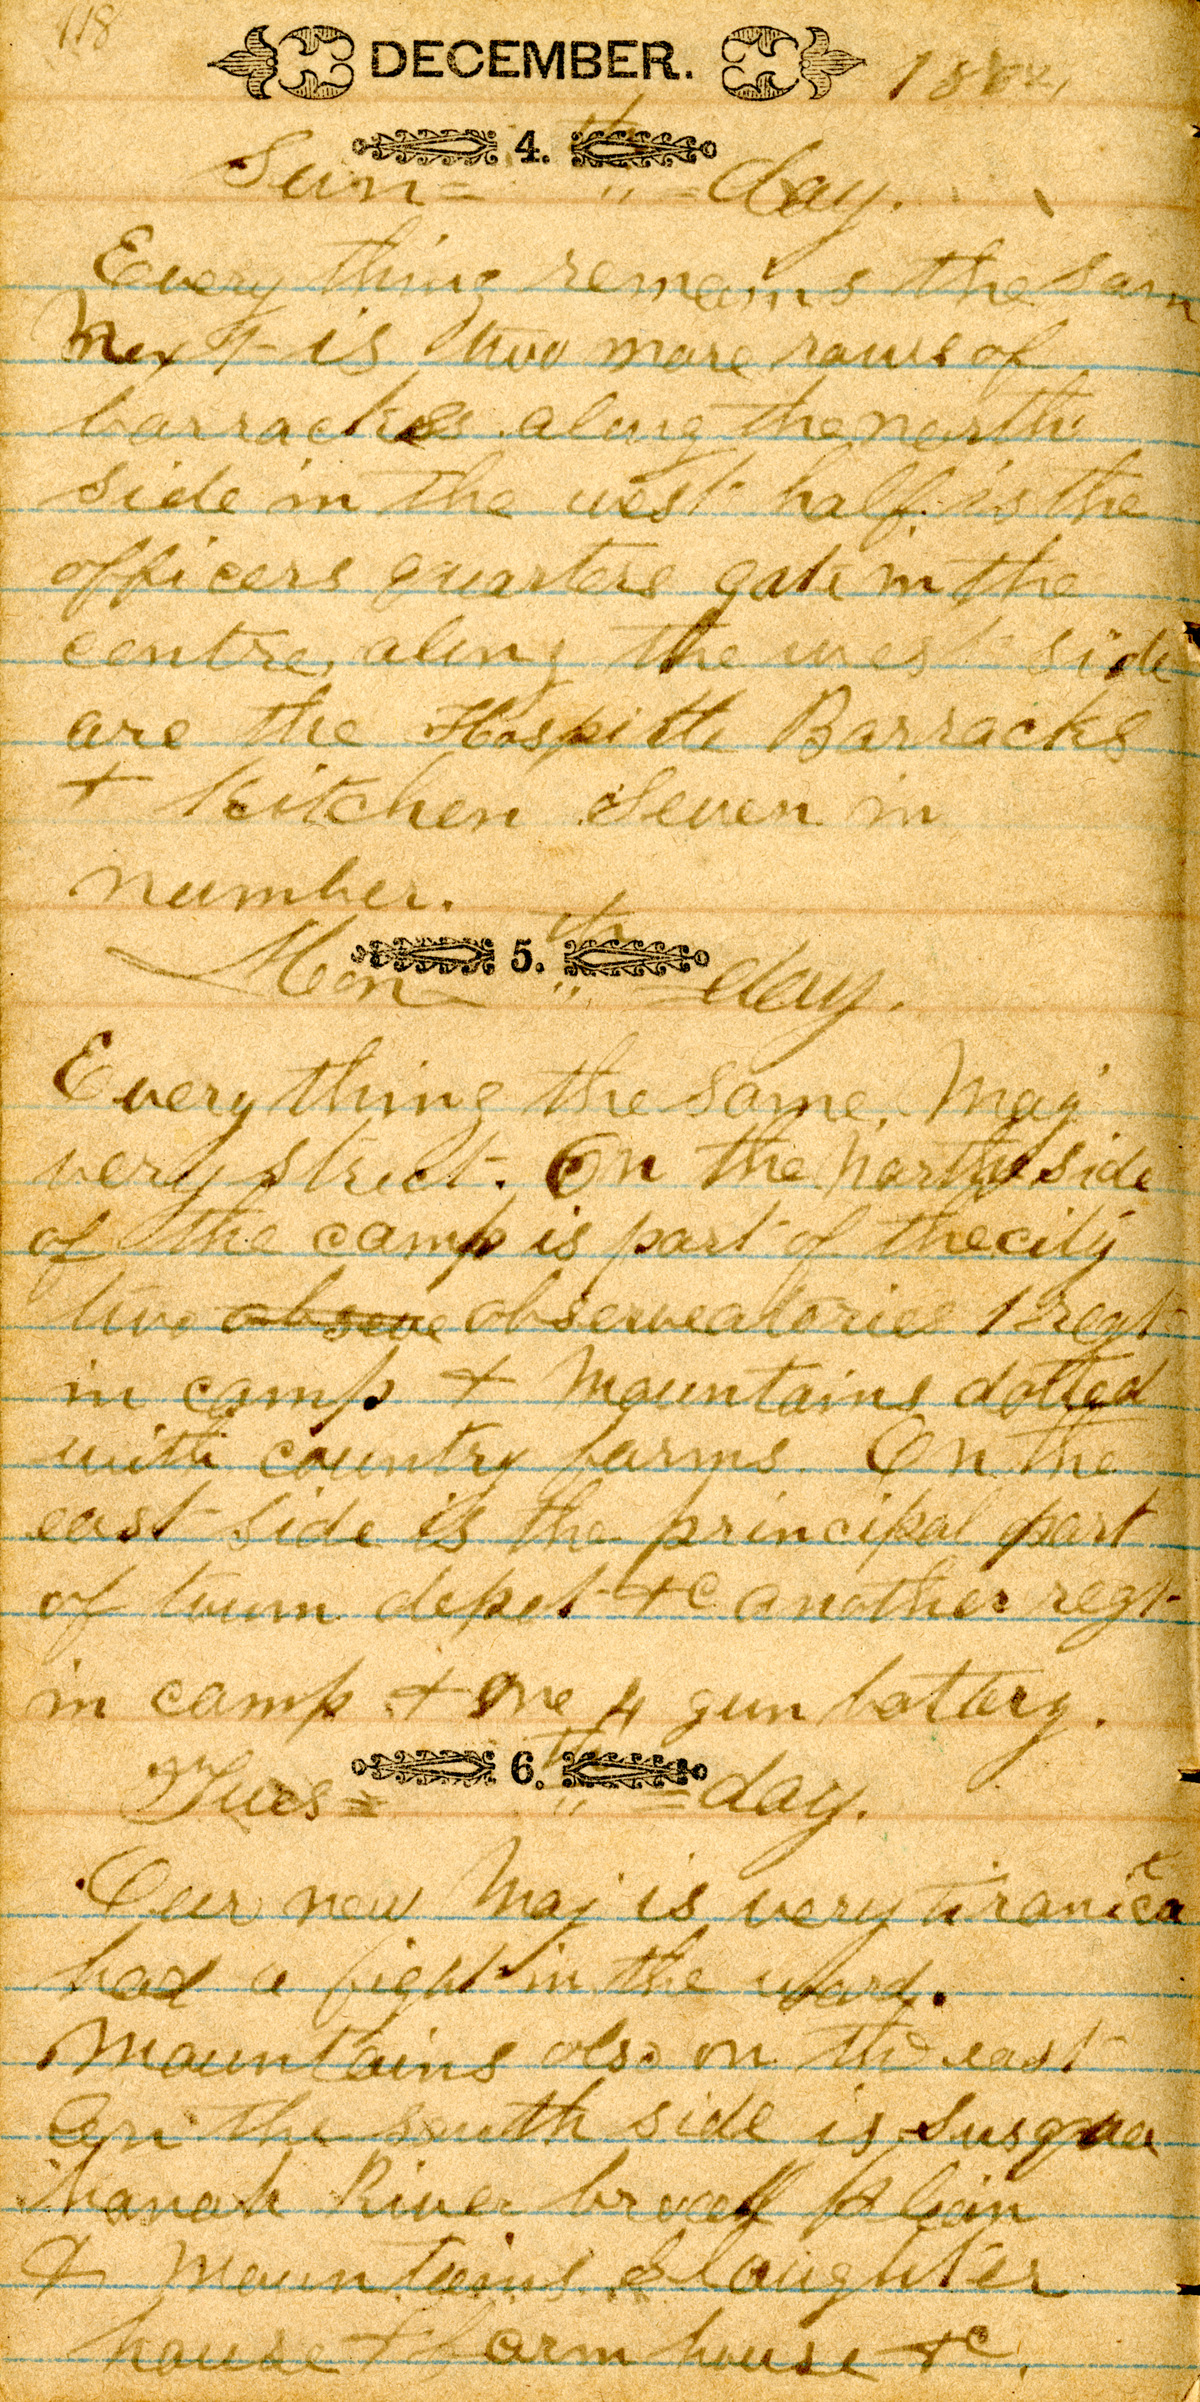 118
DECEMBER. 1864
4.th
Sun= " =day.
Every thing remains the sam
Next is two more rows of
barracks along the north
side in the west half is the
officers quarters gate in the
centre, along the west side
are the Hospitle Barracks
+ Kitchen Seven in
number.
5.th
Mon " =day.
Every thing the same, Maj
very strict. On the North side
of the camp is part of the city
two obseve observeatories 12 regt
in camp + Mountains dotted
with country farms On the
east side is the principal part
of town depot +c another regt
in camp + One 4 gun battery.
6.th
Tues= " =day.
Our new Maj is very tiranica
had a fight in the ward.
Mountains also on the east
On the south side is Susquea
hanah River broad plain
+ Mountains Slaughter
house + Farm house +c.